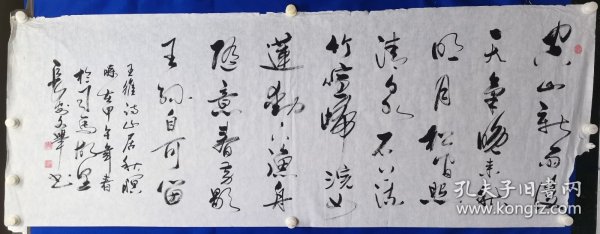 空山新雨後
天氣晚来秋
明月松间照
清泉石上流
竹喧歸浣女
蓮動下漁舟
隨意春芳歇
王孫自可留
王維詩山居秋暝
在甲午年春
於司馬故里
孔夫子旧书网
www.kongfz.com